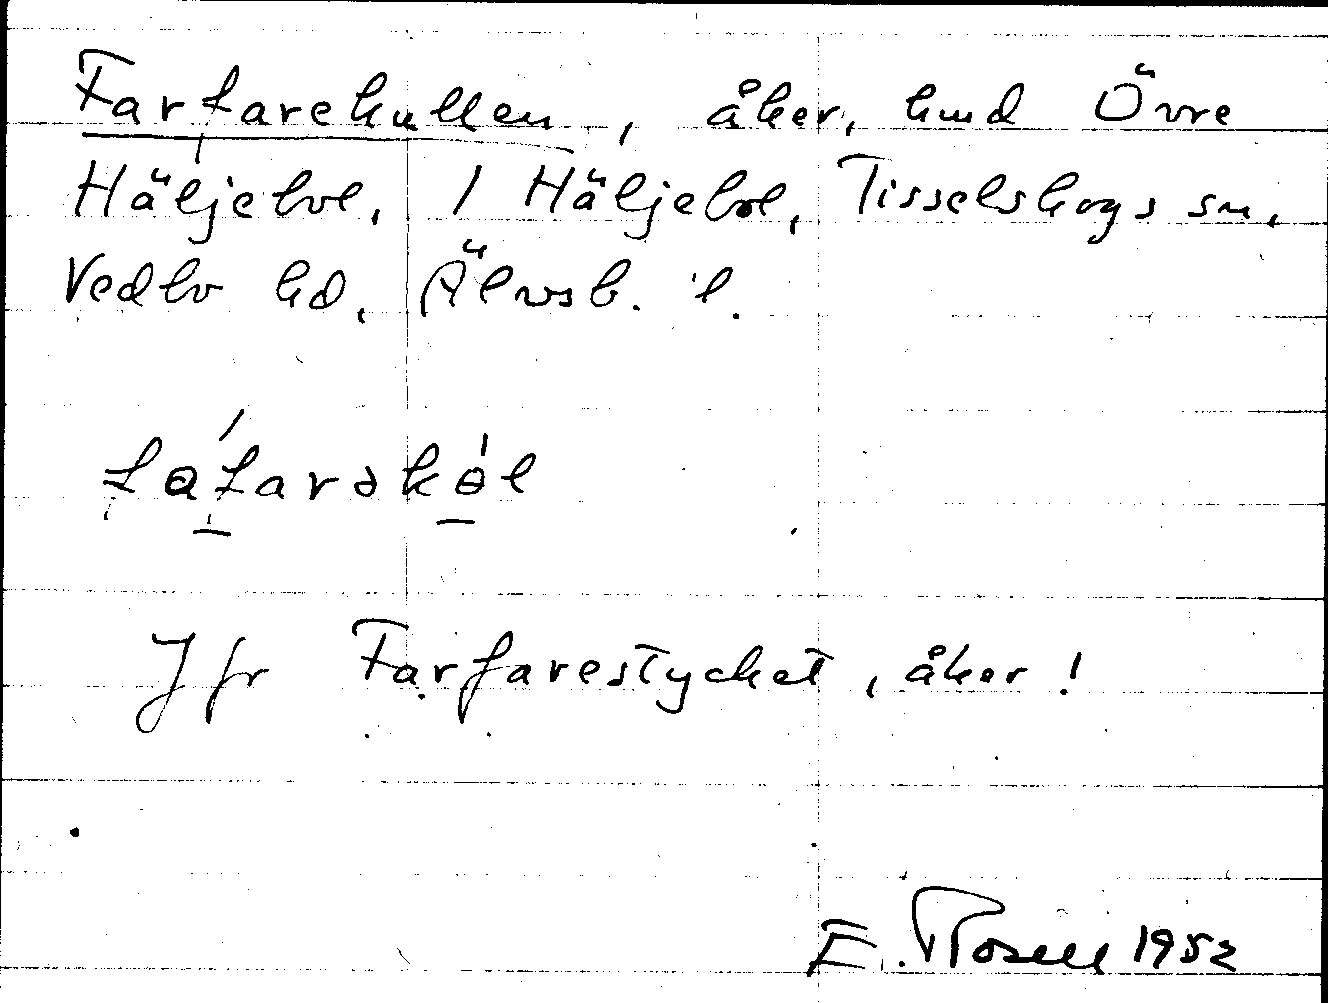 Farfarekullen, åker, hmd Övre
Häljebol, 1 Häljebol, Tisselskogs sn,
Vedbo hd, Älvsb. l.
fafarəkəl
Jfr Farfarestycket, åker!
E. Rosell 1952